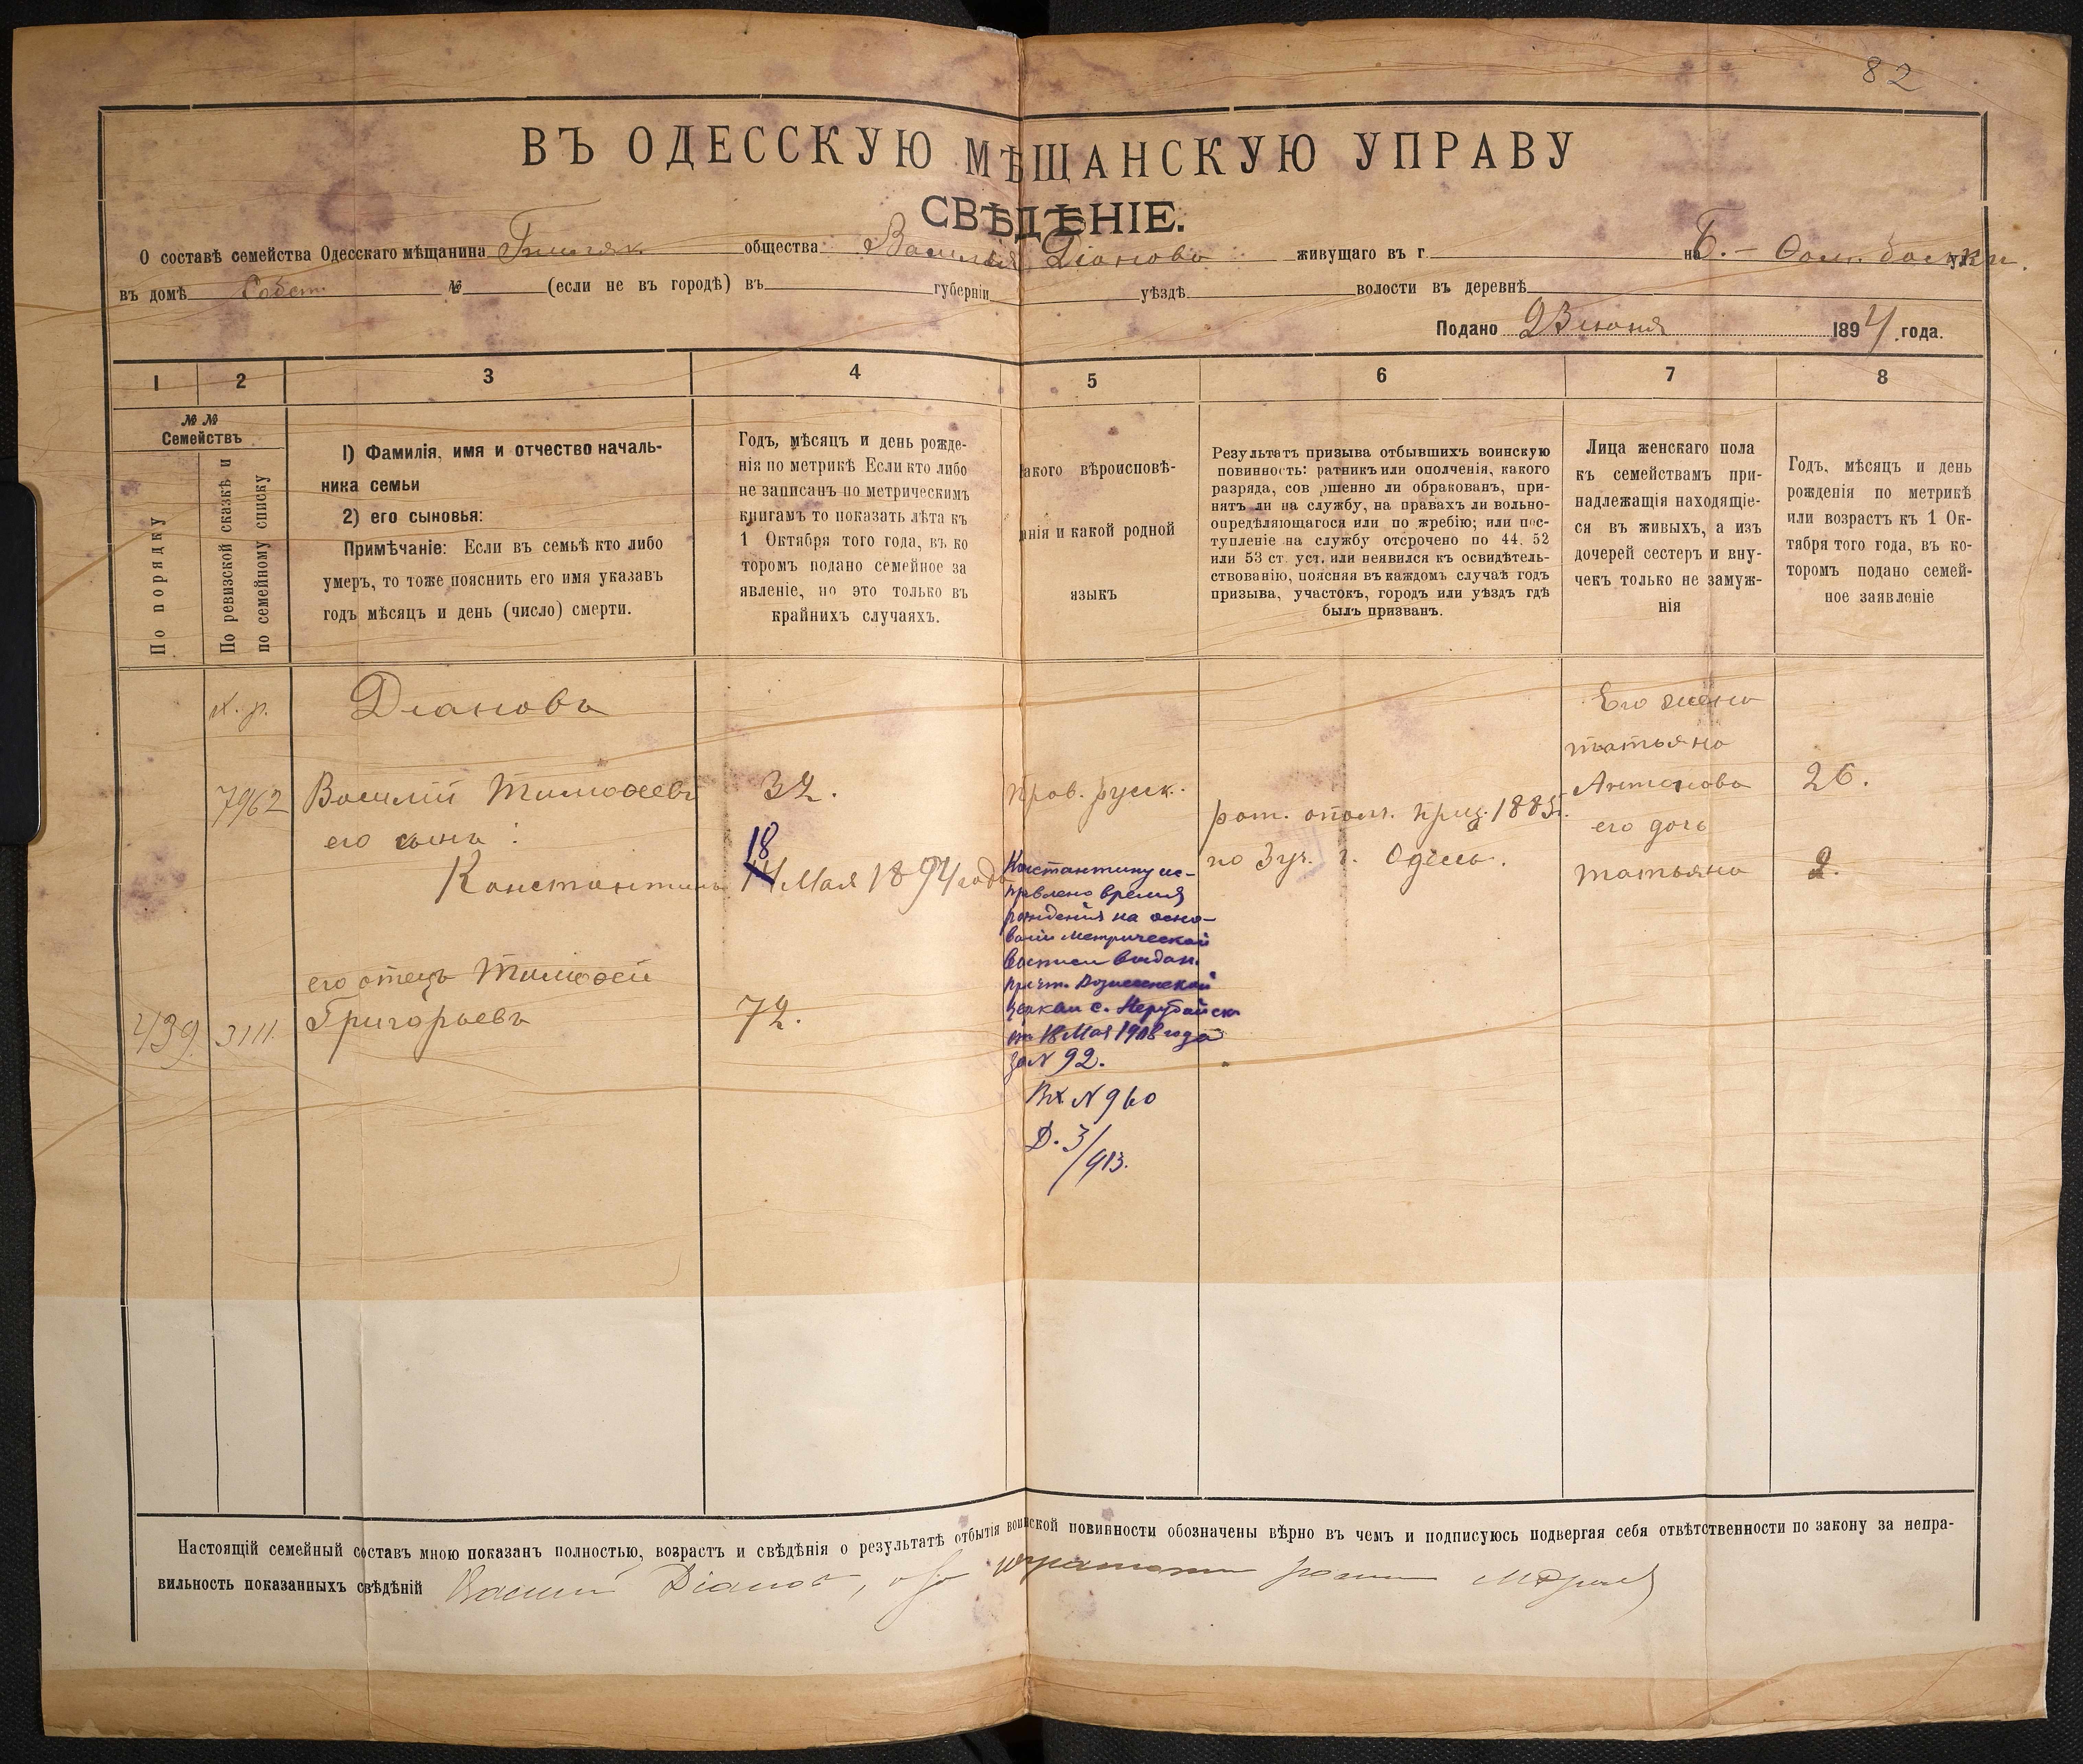 82
ВЪ ОДЕССКУЮ МѢЩАНСКУЮ УПРАВУ
СВѢДѢНІЕ.
О составѣ семейства Одесскаго мѣщанина общества Василія Діанова живущаго въ г. на Б.- Фом. балки ул.
въ домѣ Собст. № (если не въ городѣ) въ губерніи уѣздѣ волости въ деревнѣ
Подано 23 іюня 1894 года.
1 2 3 4 5 6 7 8
№ №
Семействъ
По порядку
По ревизской сказкѣ и
по семейному списку
1) Фамилія, имя и отчество началь-
ника семьи
2) его сыновья:
Примѣчаніе: Если въ семьѣ кто либо
умеръ, то тоже пояснить его имя указавъ
годъ мѣсяцъ и день (число) смерти.
Годъ, мѣсяцъ и день рожде-
нія по метрикѣ Если кто либо
не записанъ по метрическимъ
книгамъ то показать лѣта къ
1 Октября того года, въ ко
торомъ подано семейное за
явленіе, но это только въ
крайнихъ случаяхъ.
какого вѣроисповѣ-
данія и какой родной
языкъ
Результатъ призыва отбывшихъ воинскую
повинность: ратникъ или ополченія, какого
разряда, сов ршенно ли обракованъ, при-
нятъ ли на службу, на правахъ ли вольно-
опредѣляющагося или по жребію; или пос-
тупленіе на службу отсрочено по 44, 52
или 53 ст. уст. или неявился къ освидѣтель-
ствованію, поясняя въ каждомъ случаѣ годъ
призыва, участокъ, городъ или уѣздъ гдѣ
былъ призванъ.
Лица женскаго пола
къ семействамъ при-
надлежащія находящіе-
ся въ живыхъ, а изъ
дочерей сестеръ и вну-
чекъ только не замуж-
нія
Годъ, мѣсяцъ и день
рожденія по метрикѣ
или возрастъ къ 1 Ок-
тября того года, въ ко-
торомъ подано семей-
ное заявленіе
х. р. Діановъ
Его жена
татьяна
7962 Василій Тимофеевъ 32. Прав. русск. Антонова 26.
рат. ополч. приз. 1885 г.
его сынъ: его дочь
18
Константинъ 14 Мая 1894 года по 3 уч. г. Одессы. татьяна 2.
Константину ис-
правлено время
рожденія на осно-
ваніи метрической
выписи выдан.
причт. Вознесенской
церкви с. Нерубайск
отъ 18 Мая 1908 года
за N 92.
Вх N 960
Д. 3/913.
его отецъ Тимофей
439. 3111. Григорьевъ 72.
Настоящій семейный составъ мною показанъ полностью, возрастъ и свѣдѣнія о результатѣ отбытія воинской повинности обозначены вѣрно въ чемъ и подписуюсь подвергая себя отвѣтственности по закону за непра-
вильность показанныхъ свѣдѣній Василій Діановъ,